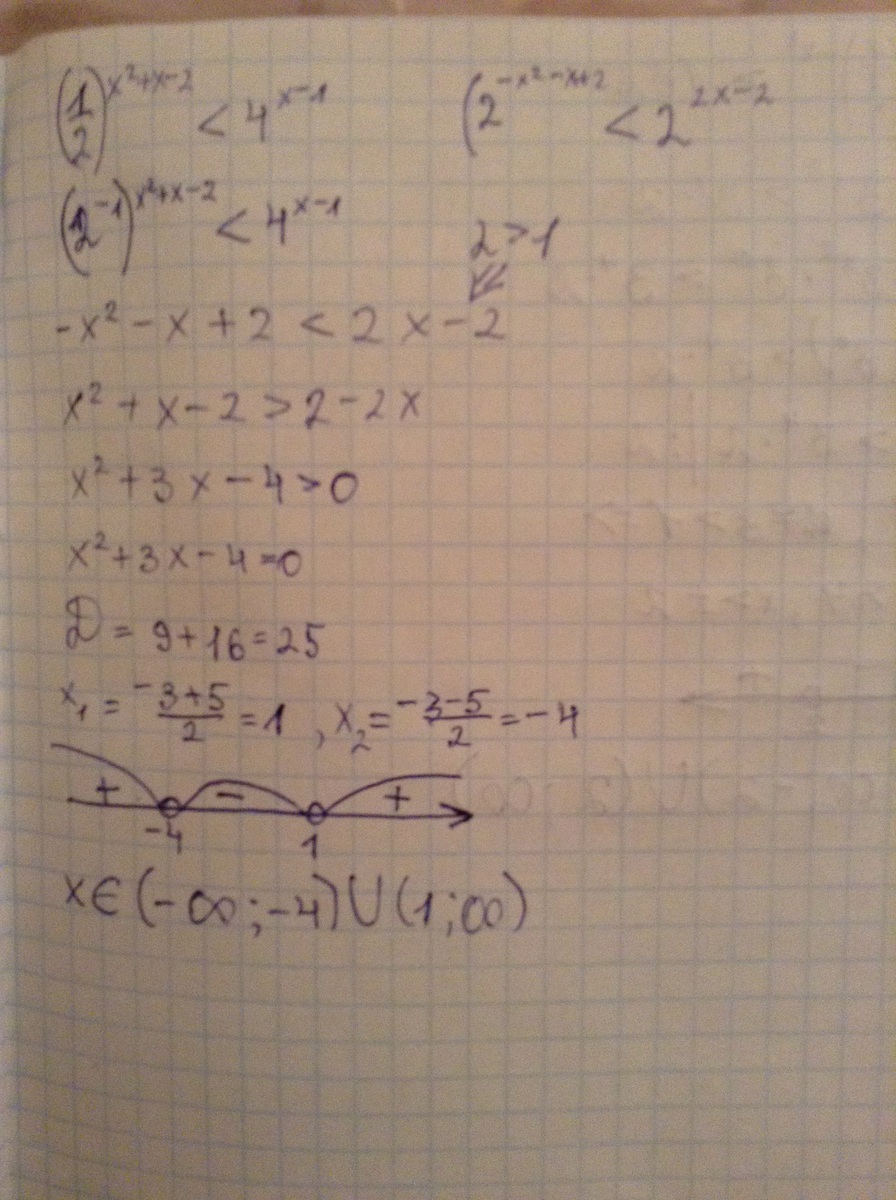 (1/2)^(x²+x-2) < 4^(x-1)
(2^(-x²-x+2) < 2^(2x-2)
(2⁻¹)^(x²+x-2) < 4^(x-1)
2 > 1
-x² - x + 2 < 2x - 2
x² + x - 2 > 2 - 2x
x² + 3x - 4 > 0
x² + 3x - 4 = 0
D = 9 + 16 = 25
x₁ = (-3+5)/2 = 1, x₂ = (-3-5)/2 = -4
+ - +
-4 1
x∈(-∞;-4)∪(1;∞)